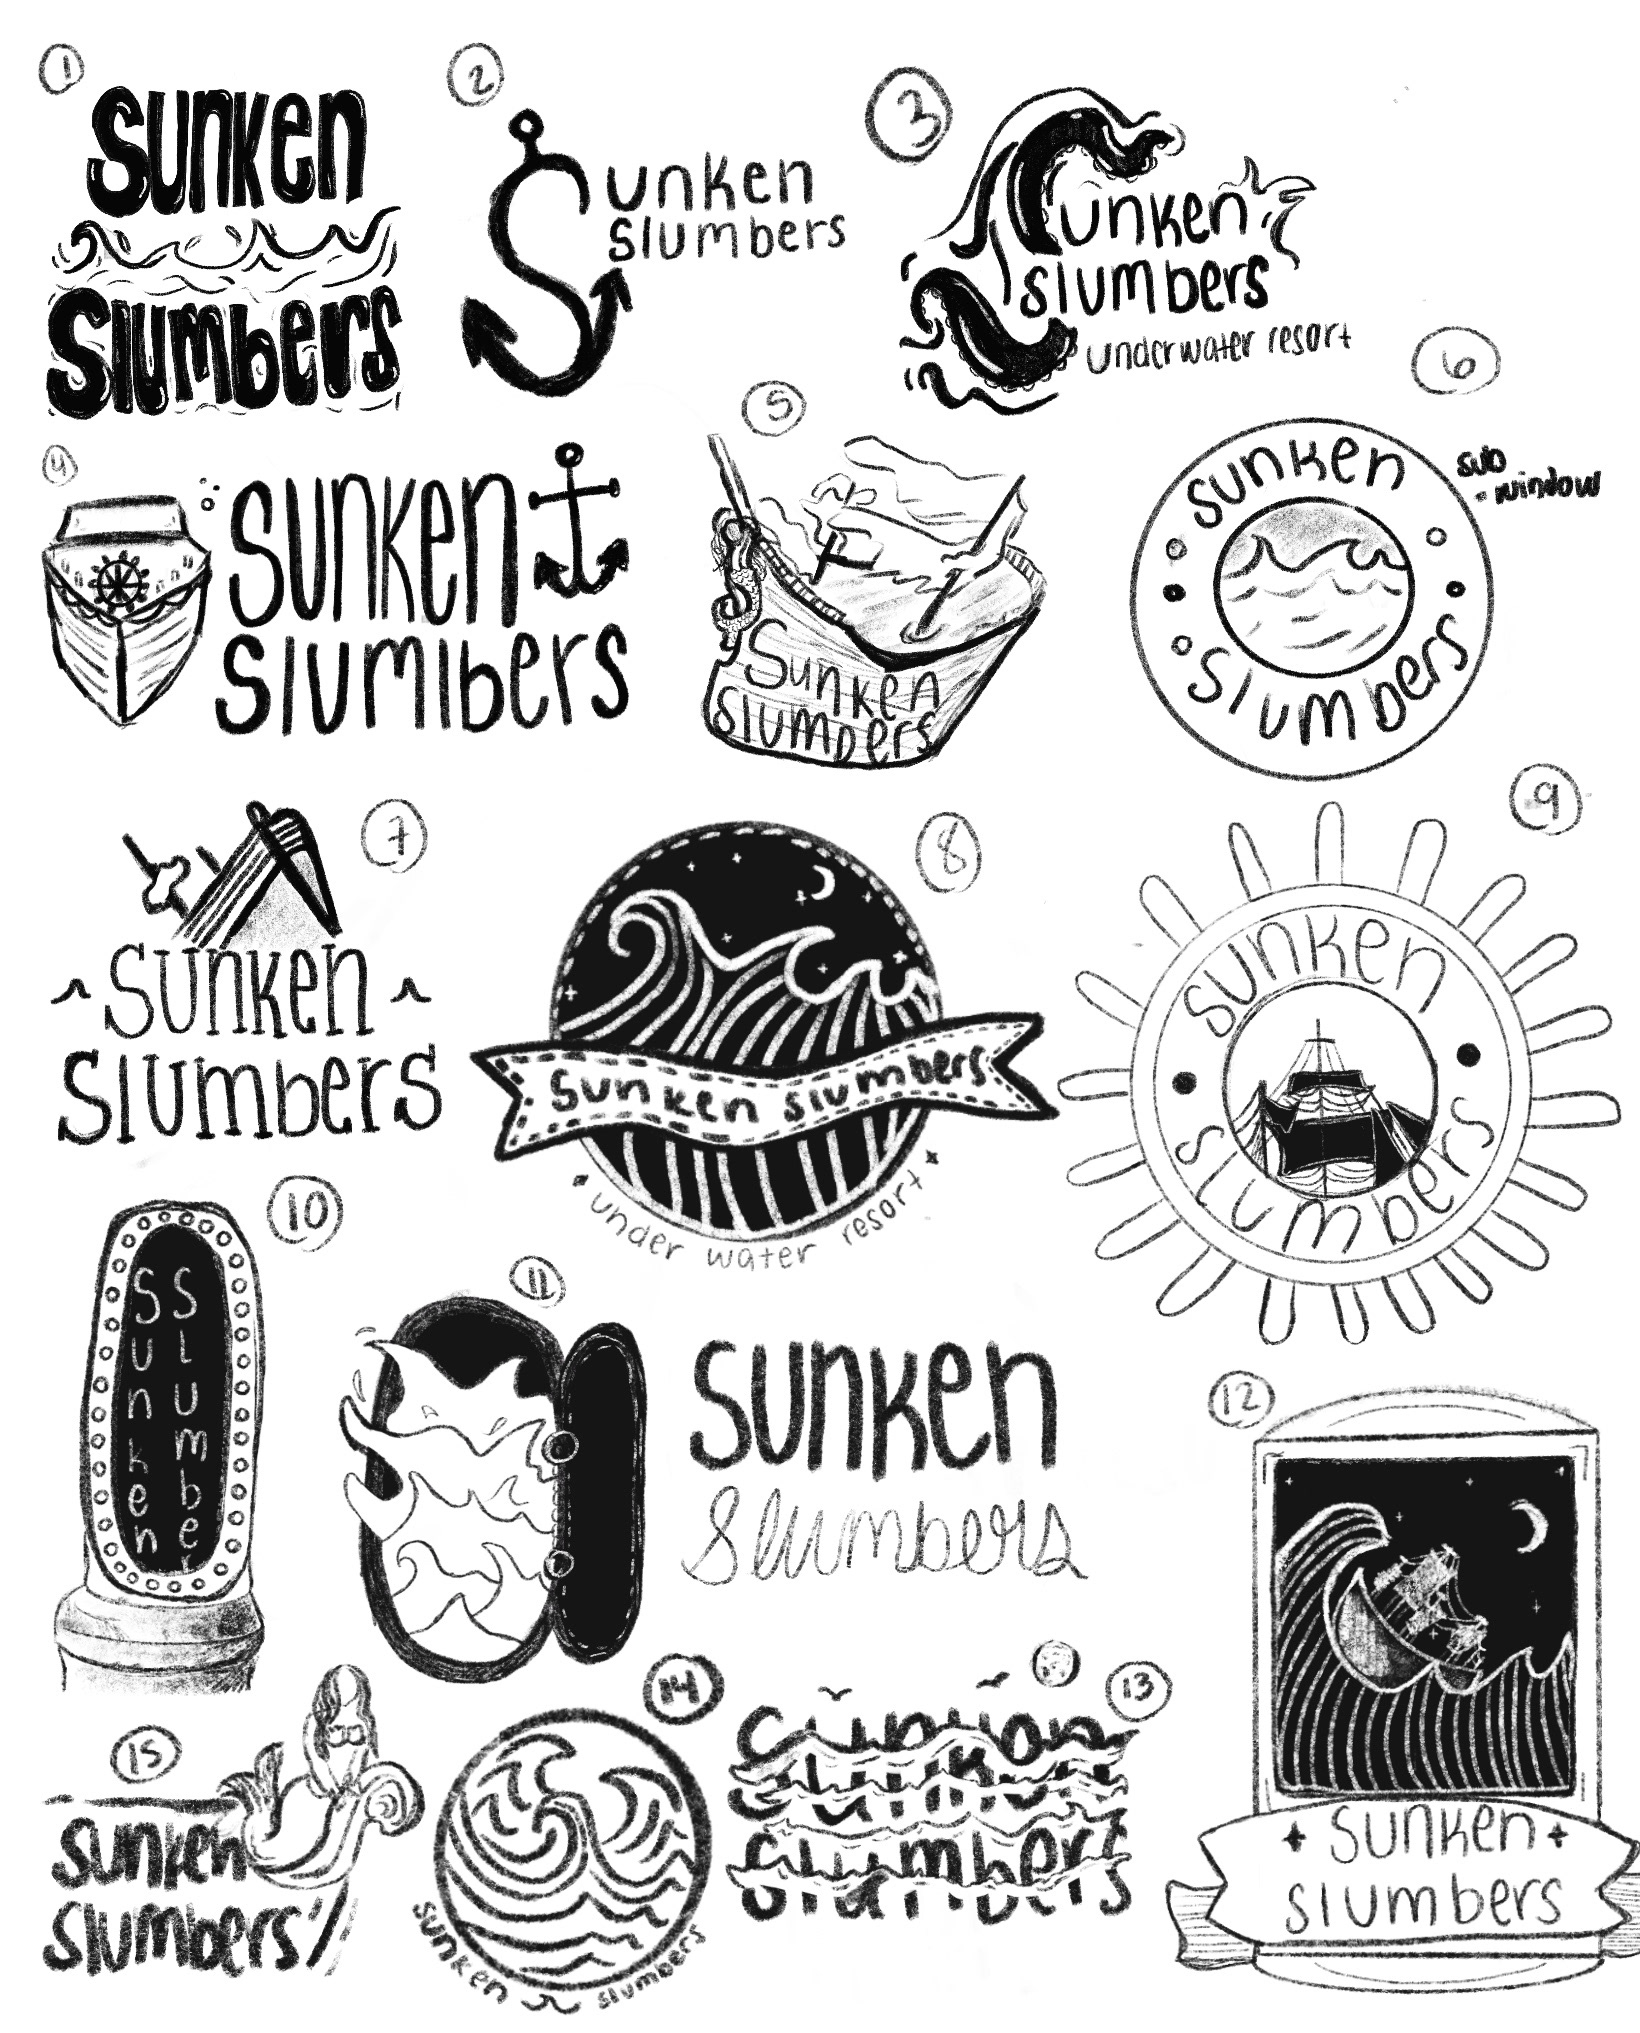 1
Sunken
Slumbers
2
Sunken
Slumbers
3
Sunken
Slumbers
underwater resort
4
Sunken
Slumbers
5
Sunken
Slumbers
6
Sunken
Slumbers
sub
window
7
Sunken
Slumbers
8
Sunken Slumbers
under water resort
9
Sunken
Slumbers
10
Sunken
Slumber
11
Sunken
Slumbers
12
Sunken
Slumbers
13
Sunken
Slumbers
14
Sunken Slumbers
15
Sunken
Slumbers